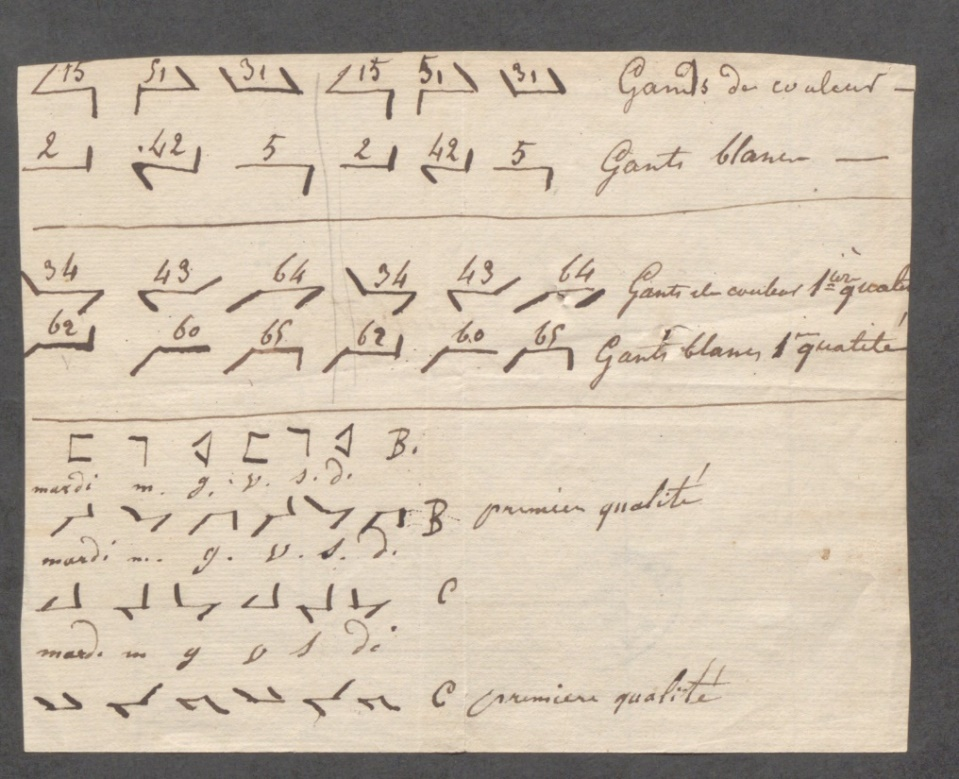 15 51 31 15 51 31 Gands de couleur —
2 42 5 2 42 5 Gants blancs —
34 43 64 34 43 64 Gants de couleur 1ière qualité
62 60 65 62 60 65 Gants blancs 1re qualité
B.
mardi m. g. v. s. d.
B premier qualité
mardi m. g. v. s. d.
C
mardi m g v s di
C premiere qualité